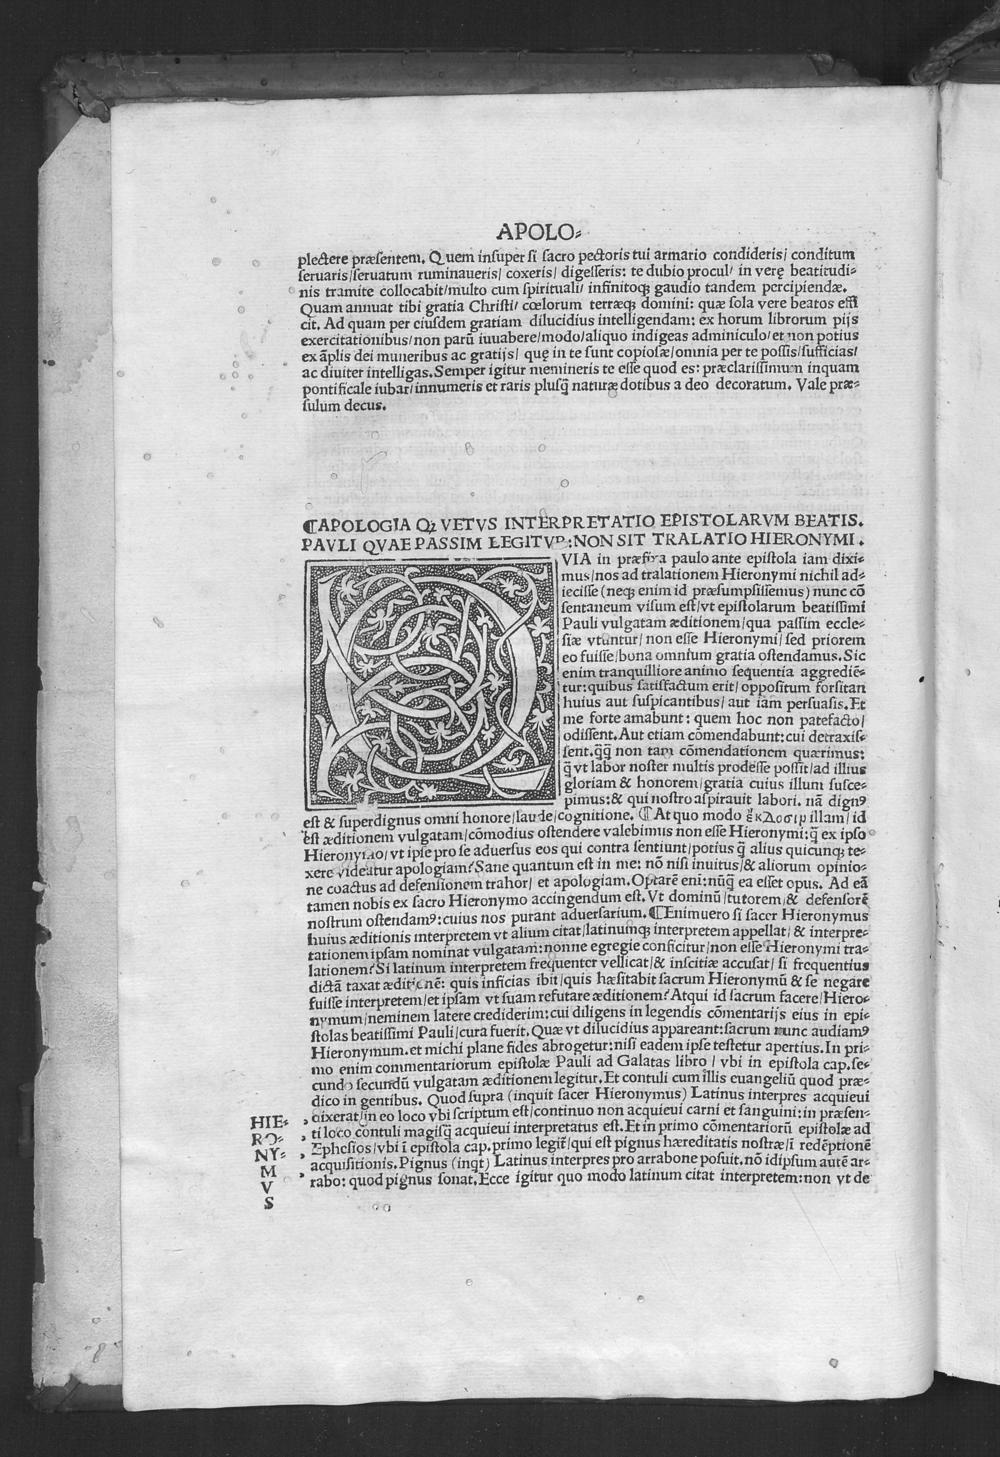 APOLO⸗
plectere præsentem. Quem insuper si sacro pectoris tui armario condideris/ conditum
seruaris/seruatum ruminaueris/ coxeris/ digesseris: te dubio procul/ in verę beatitudi⸗
nis tramite collocabit/multo cum spirituali/ infinitoqꝫ gaudio tandem percipiendæ.
Quam annuat tibi gratia Christi/ cœlorum terræqꝫ domini: quæ sola vere beatos effi
cit. Ad quam per eiusdem gratiam dilucidius intelligendam: ex horum librorum pijs
exercitationibus/non parū iuuabere/modo/aliquo indigeas adminiculo/et non potius
ex āplis dei muneribus ac gratijs/ quę in te sunt copiosæ/omnia per te possis/sufficias/
ac diuiter intelligas. Semper igitur memineris te esse quod es: præclarissimum inquam
pontificale iubar/innumeris et raris plusq̄ naturæ dotibus a deo decoratum. Vale præ⸗
sulum decus.
¶APOLOGIA Qꝫ VETVS INTERPRETATIO EPISTOLARVM BEATIS.
PAVLI QVAE PASSIM LEGITVR:NON SIT TRALATIO HIERONYMI.
QVIA in præfixa paulo ante epistola iam dixi⸗
mus/nos ad tralationem Hieronymi nichil ad⸗
iecisse (neqꝫ enim id præsumpsissemus) nunc cō
sentaneum visum est/vt epistolarum beatissimi
Pauli vulgatam æditionem/qua passim eccle⸗
siæ vtuntur/ non esse Hieronymi/ sed priorem
eo fuisse/bona omnium gratia ostendamus. Sic
enim tranquilliore animo sequentia aggrediē⸗
tur: quibus satisfactum erit/ oppositum forsitan
huius aut suspicantibus/ aut iam persuasis. Et
me forte amabunt: quem hoc non patefacto/
odissent. Aut etiam cōmendabunt: cui detraxis⸗
sent. q̄q̄ non tam cōmendationem quærimus:
q̄ vt labor noster multis prodesse possit/ad illius
gloriam & honorem/gratia cuius illum susce⸗
pimus: & qui nostro aspirauit labori. nā dignꝰ
est & superdignus omni honore/laude/cognitione. ¶ At quo modo ἔκδοσιμ illam/id
est æditionem vulgatam/cōmodius ostendere valebimus non esse Hieronymi: q̄ ex ipso
Hieronymo/vt ipse pro se aduersus eos qui contra sentiunt/potius q̄ alius quicunqꝫ te⸗
xere videatur apologiam? Sane quantum est in me: nō nisi inuitus/& aliorum opinio⸗
ne coactus ad defensionem trahor/ et apologiam. Optarē eni: nūq̄ ea esset opus. Ad eā
tamen nobis ex sacro Hieronymo accingendum est. Vt dominū/tutorem/& defensorē
nostrum ostendamꝰ: cuius nos putant aduersarium. ¶Enimuero si sacer Hieronymus
huius æditionis interpretem vt alium citat/latinumqꝫ interpretem appellat/ & interpre⸗
tationem ipsam nominat vulgatam: nonne egregie conficitur/non esse Hieronymi tra⸗
lationem? Si latinum interpretem frequenter vellicat/& inscitiæ accusat/ si frequentius
dictā taxat æditionē: quis inficias ibit/quis hæsitabit sacrum Hieronymū & se negare
fuisse interpretem/et ipsam vt suam refutare æditionem? Atqui id sacrum facere/Hiero⸗
nymum/neminem latere crediderim: cui diligens in legendis cōmentarijs eius in epi⸗
stolas beatissimi Pauli/cura fuerit. Quæ vt dilucidius appareant: sacrum nunc audiamꝰ
Hieronymum. et michi plane fides abrogetur: nisi eadem ipse testetur apertius. In pri⸗
mo enim commentariorum epistolæ Pauli ad Galatas libro/ vbi in epistola cap. se⸗
cundo secundū vulgatam æditionem legitur. Et contuli cum illis euangeliū quod præ⸗
dico in gentibus. Quod supra (inquit sacer Hieronymus) Latinus interpres acquieui
dixerat/in eo loco vbi scriptum est/continuo non acquieui carni et sanguini: in præsen⸗
ti loco contuli magisq̄ acquieui interpretatus est. Et in primo cōmentariorū epistolæ ad
Ephesios/vbi ī epistola cap. primo legit̄/qui est pignus hæreditatis nostræ/ī redēptionē
acquisitionis. Pignus (inqt) Latinus interpres pro arrabone posuit. nō idipsum autē ar⸗
rabo: quod pignus sonat. Ecce igitur quo modo latinum citat interpretem: non vt de
HIE⸗
RO⸗
NY⸗
M
V
S